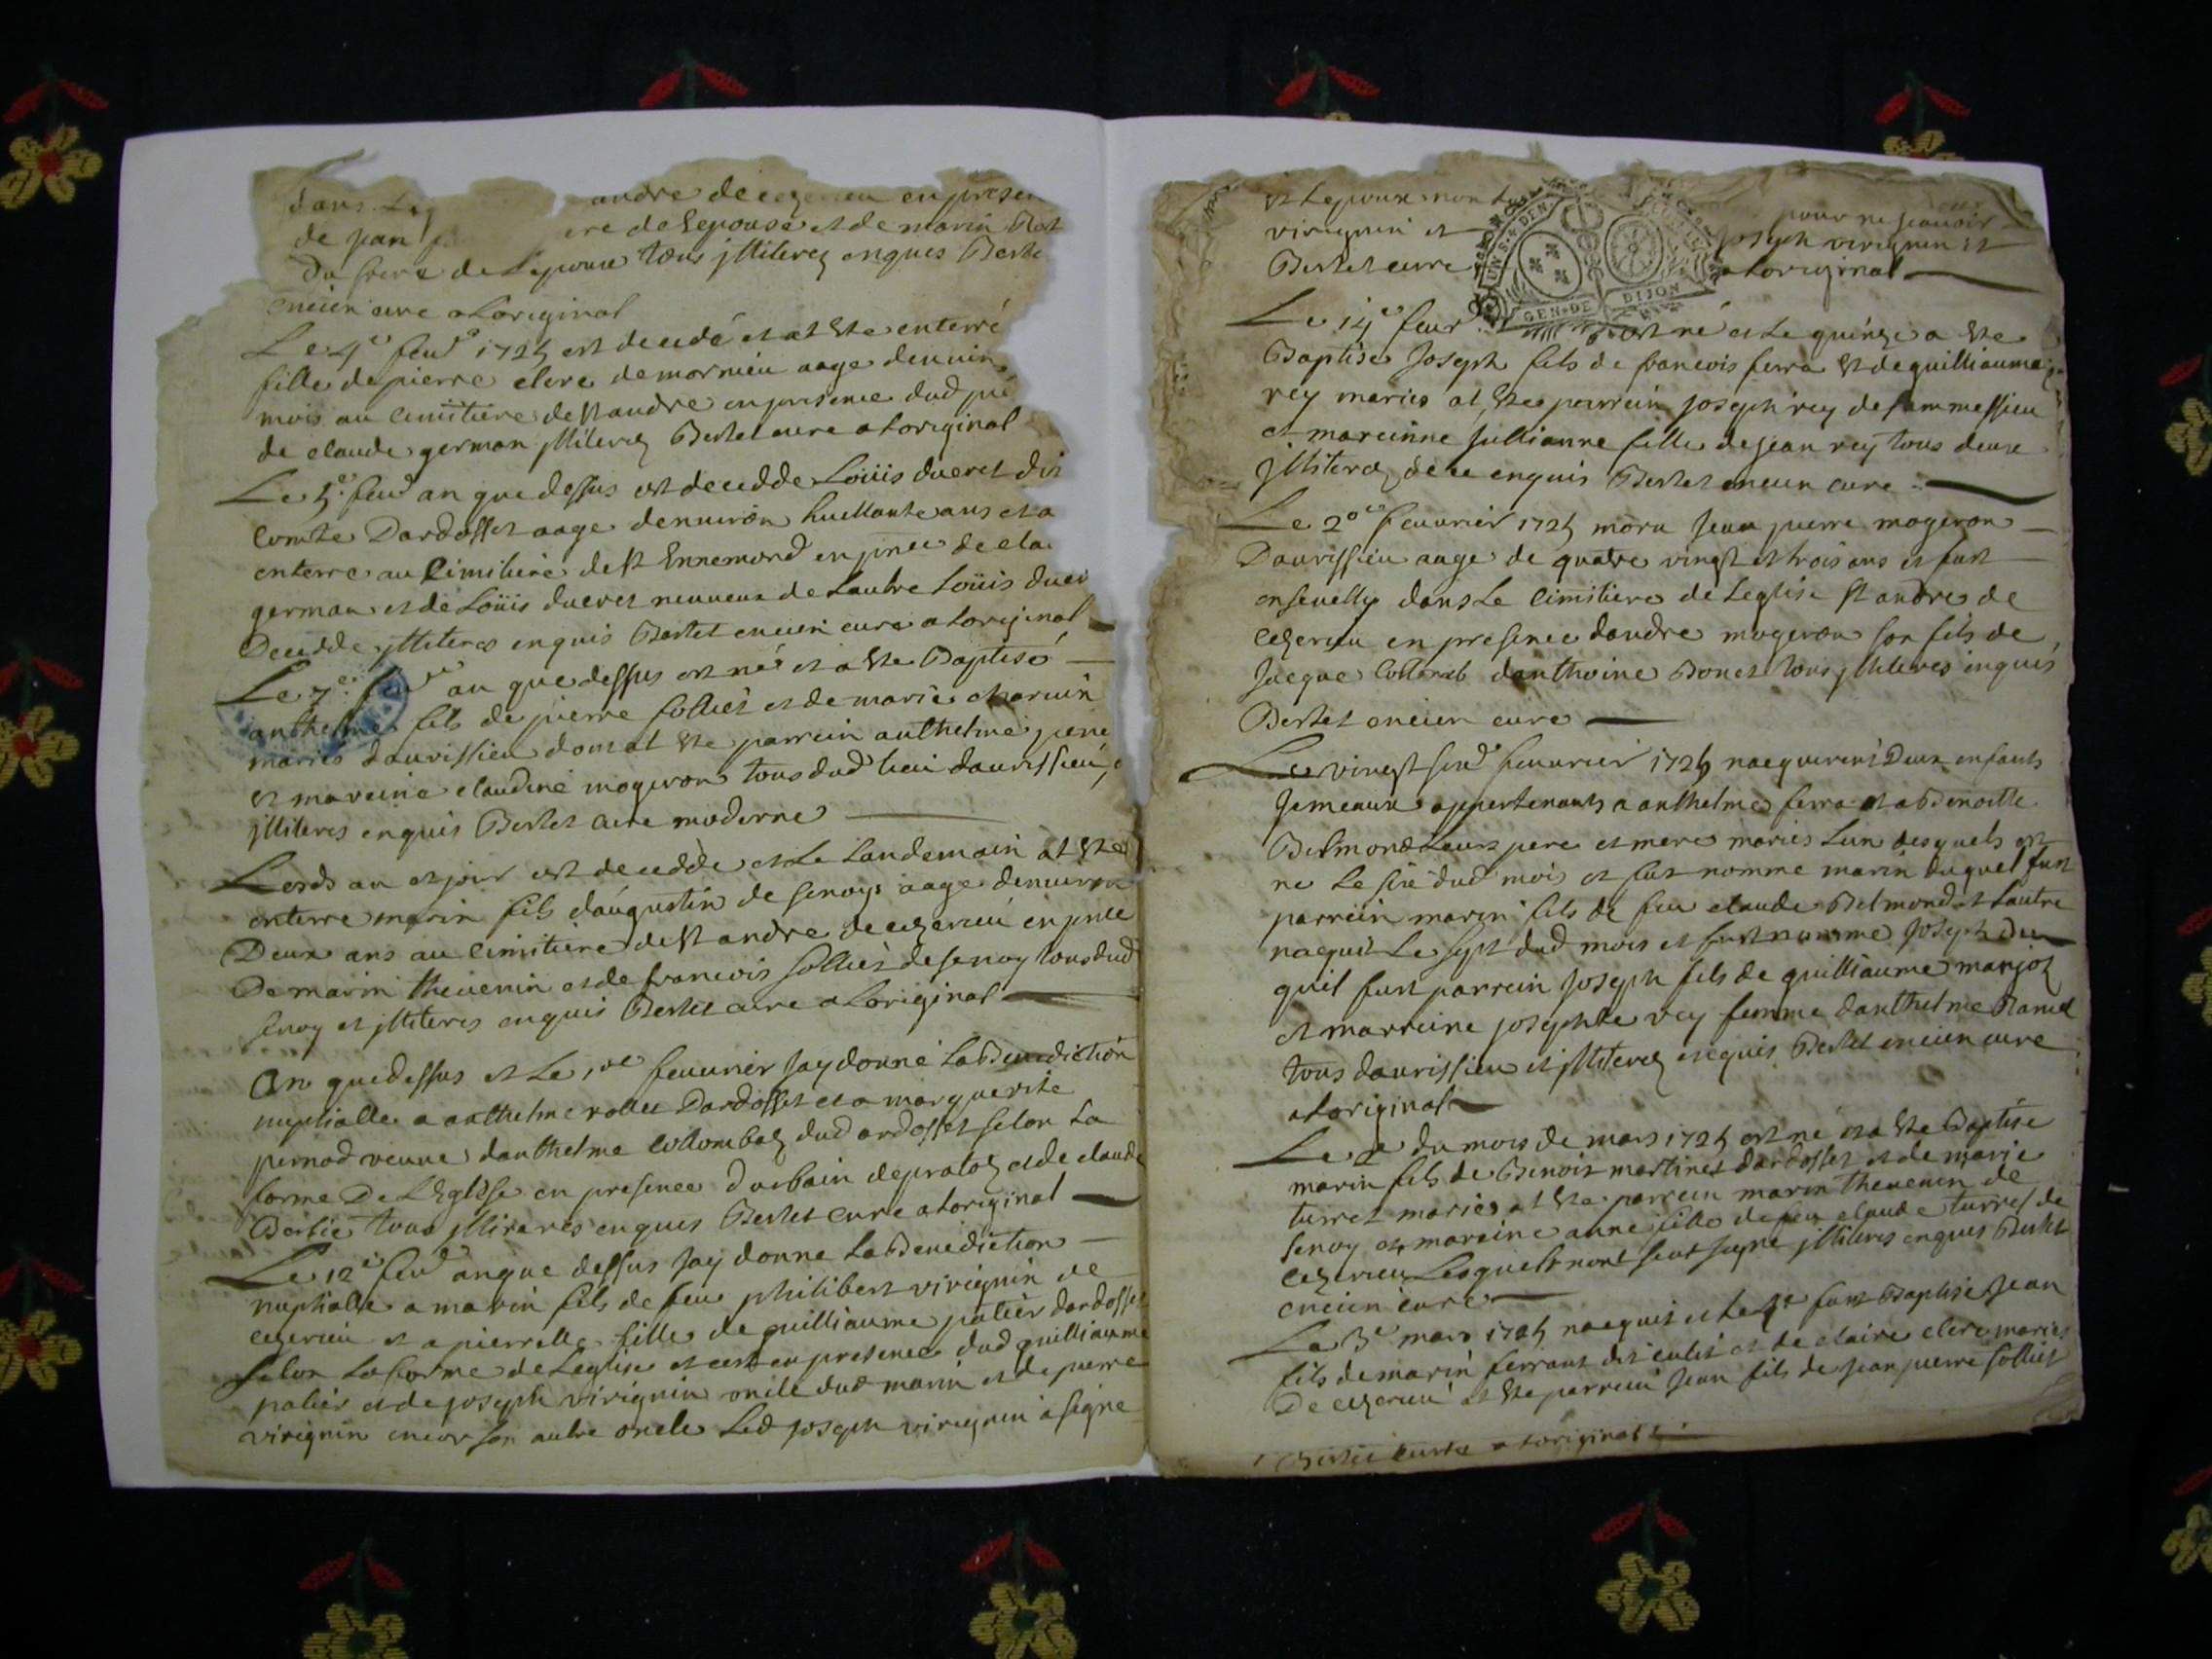 dans
andre de cezerieu en presen
de jean
ere de lepouse et de marin
du frere de lepoux tous jlliterez enquis Berte
encien cure a loriginal
Le 4e feud 1725 est decedé et at Este enterré
fille de pierre clere demornieu aage denuiro
mois au cimitiere de st andre en presence dud pie
de claude german jlliterez Bertet cure a loriginal
Le 5e feud an que dessus est decedde Loüis dueret dit
comte Dardosset aage denuiron huittante ans et a
enterre au Cimitiere de st Ennemond en pnce de cla
german et de Loüis dueret neuueux de Lautre Loüis duer
Decedde jlliteres enquis Bertet encien cure a loriginal
Le 7e an que dessus est né et a Este Baptisé
anthelme fils de pierre sollier et de marie charuin
mariés daurissieu dont at Este parrein anthelme
et mareine claudine mogeron tous dud lieu daurissieu
jlliteres enquis Bertet cure moderne
Lesds an et jour est decedde et le landemain at Este
enterre marin fils daugustin de senoys aage denuiron
Deux ans au cimitiere de st andre de cezerieu en pnce
De marin theuenin et de francois sollier de senoy tous dud
senoy et jlliteres enquis Bertet cure a Loriginal
An que dessus et Le feuurier Jay donné la Benediction
nuptialle a anthelme rollet Dardosset et a marguerite
pernod veuue danthelme collombaz dud ardosset selon La
forme De LEglise en presence durbain depraloz et de claude
Bertet cure a loriginal
Le 12e feud an que dessus Jay donne la Benediction
nuptialle a marin fils de feu philibert virignin de
cezerieu et a pierrette fille de guilliaume palier dardosset
selon la forme de Leglise et cest en presence dud guilliaume
palier et de joseph virignin oncle dud marin et de pierre
virignin encor son autre oncle Led joseph virignin a signe
et Lepoux
pour ne scauoir
virignin et
Joseph virignin et
Bertet cure
a Loriginal
GEN·DE DIJON
Le 14e feur
est né et le quinze a Este
Baptise Joseph fils de francois ferra et de guilliauma
rey maries at Este parrein joseph rey de
et mareinne jullianne fille de jean rey tous deux
jlliterez de ce enquis Bertet encien cure
Le 20e feuurier 1725 moru Jean pierre mogeron
Daurissieu aage de quatre vingt et trois ans et fust
enseuelly dans Le Cimitiere de Leglise st andre de
cezerieu en presence dandre mogeron son fils de
Jacque danthoine Bonet tous jlliteres enquis
Bertet encien cure
Les vingt feuurier 1725 naequirent Deux enfants
Jemeaux appertenants a anthelme ferra et a Benoitte
Belmond Leurs pere et mere maries Lun desquels est
ne Le size dud mois et fut nomme marin duquel fust
parrein marin fils de feu claude Belmond et Lautre
naequit Le sept dud mois et fust nomme Joseph Du
quel fust parrein Joseph fils de guilliaume marjoz
et marreine josephte rey femme danthelme
tous daurissieu et jlliterez enquis Bertet encien cure
a loriginal
Le 2e du mois de mars 1725 est né et a Este Baptise
marin fils de Benoit martinet dardosset et de marie
turret mariés at Este parrein marin theuenin de
senoy et mareine anne fille de feu claude turret de
cezerieu Lesquels nont seut signe jlliteres enquis Bertet
encien cure
Le 3e mars 1725 naequit et Le 4e fust Baptisé Jean
fils de marin ferrant dit et de claire clere maries
De cezerieu at Este parrein jean fils de jean pierre sollier
Bertet cure a loriginal